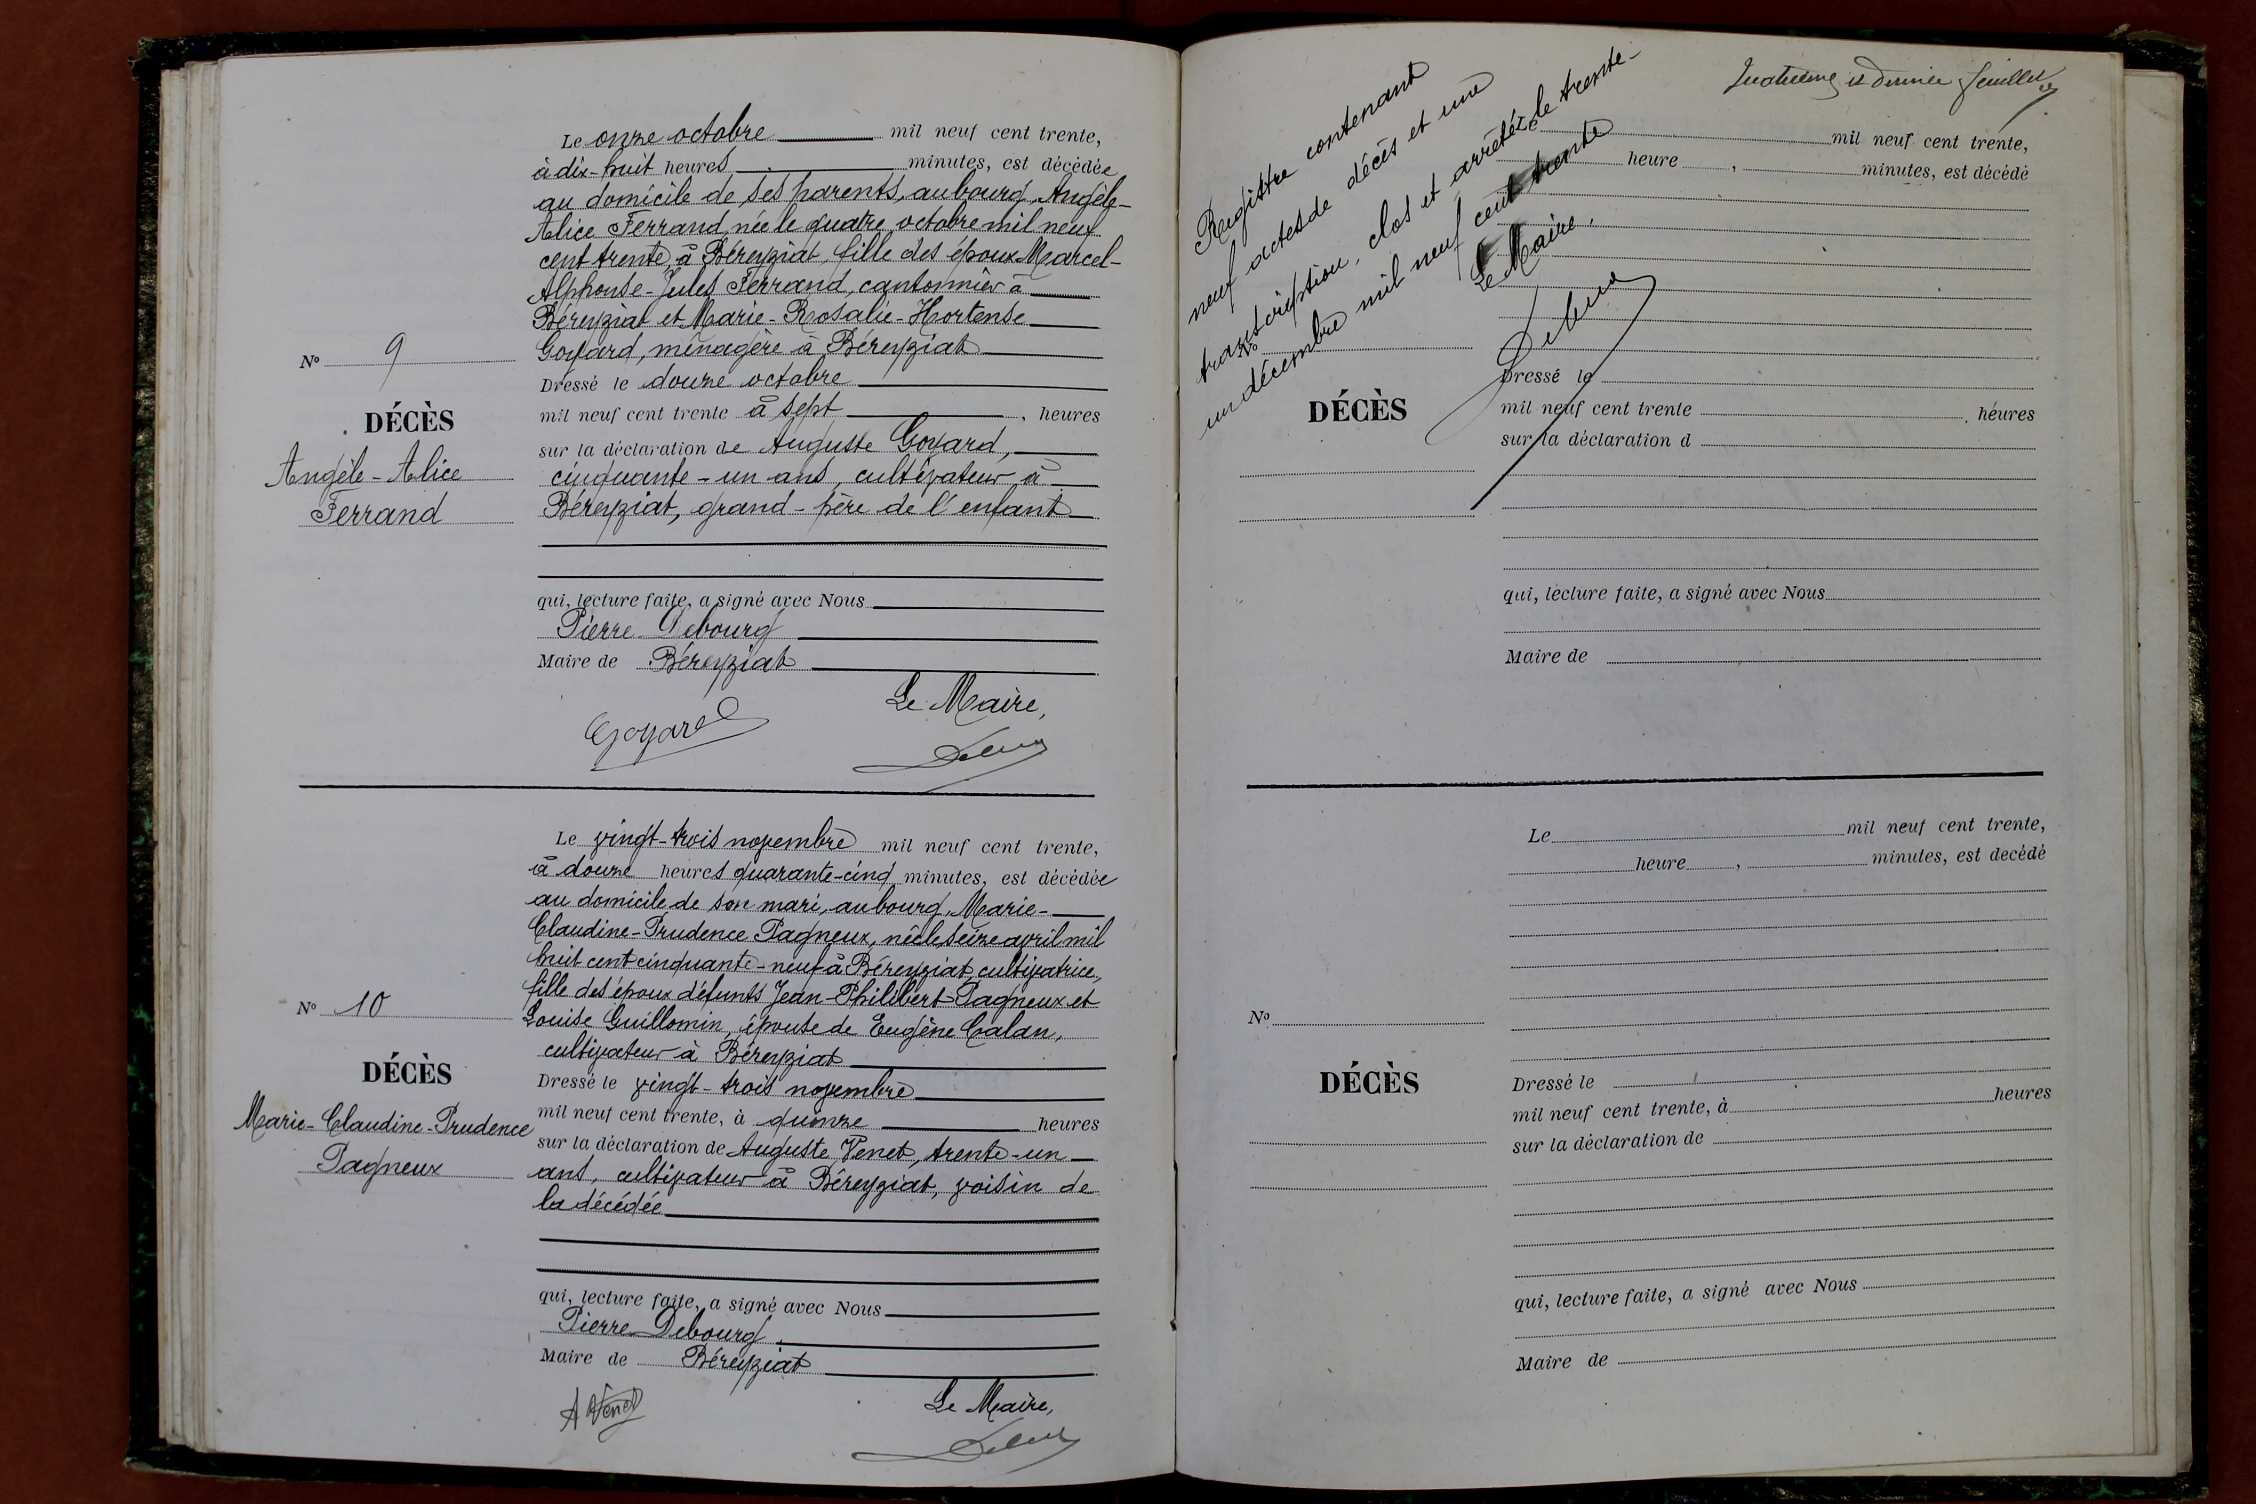 Le onze octobre mil neuf cent trente,
à dix-huit heures minutes, est décédée
au domicile de ses parents, au bourg, Angèle-
Alice Ferrand, née le quatre octobre mil neuf
cent trente, à Béreyziat, fille des époux Marcel-
Alphonse-Jules Ferrand, cantonnier à
Béreyziat et Marie-Rosalie-Hortense
Goyard, ménagère à Béreyziat
Nº 9
DÉCÈS
Angèle-Alice
Ferrand
Dressé le douze octobre
mil neuf cent trente à sept, heures
sur la déclaration de Auguste Goyard,
cinquante-un ans, cultivateur à
Béreyziat, grand-père de l'enfant
qui, lecture faite, a signé avec Nous
Pierre Debourg
Maire de Béreyziat
Le Maire,
Goyard
Le vingt-trois novembre mil neuf cent trente,
à douze heures quarante-cinq minutes, est décédée
au domicile de son mari, au bourg, Marie-
Claudine-Prudence Pagneux, née le seize avril mil
huit cent cinquante-neuf à Béreyziat, cultivatrice,
fille des époux défunts Jean-Philibert Pagneux et
Louise Guillomin, épouse de Eugène Calan,
cultivateur à Béreyziat
Nº 10
DÉCÈS
Marie-Claudine-Prudence
Pagneux
Dressé le vingt-trois novembre
mil neuf cent trente, à quinze heures
sur la déclaration de Auguste Venet, trente-un
ans, cultivateur à Béreyziat, voisin de
la décédée
qui, lecture faite, a signé avec Nous
Pierre Debourg
Maire de Béreyziat
Le Maire,
A Venet
Quatrième et dernier feuillet
Registre contenant
neuf actes de décès et une
transcription, clos et arrêté le trente-
un décembre mil neuf cent trente
Le Maire,
Le mil neuf cent trente,
heure , minutes, est décédé
Nº
DÉCÈS
Dressé le
mil neuf cent trente , heures
sur la déclaration d
qui, lecture faite, a signé avec Nous
Maire de
Le mil neuf cent trente,
heure , minutes, est decédé
Nº
DÉCÈS
Dressé le
mil neuf cent trente, à heures
sur la déclaration de
qui, lecture faite, a signé avec Nous
Maire de